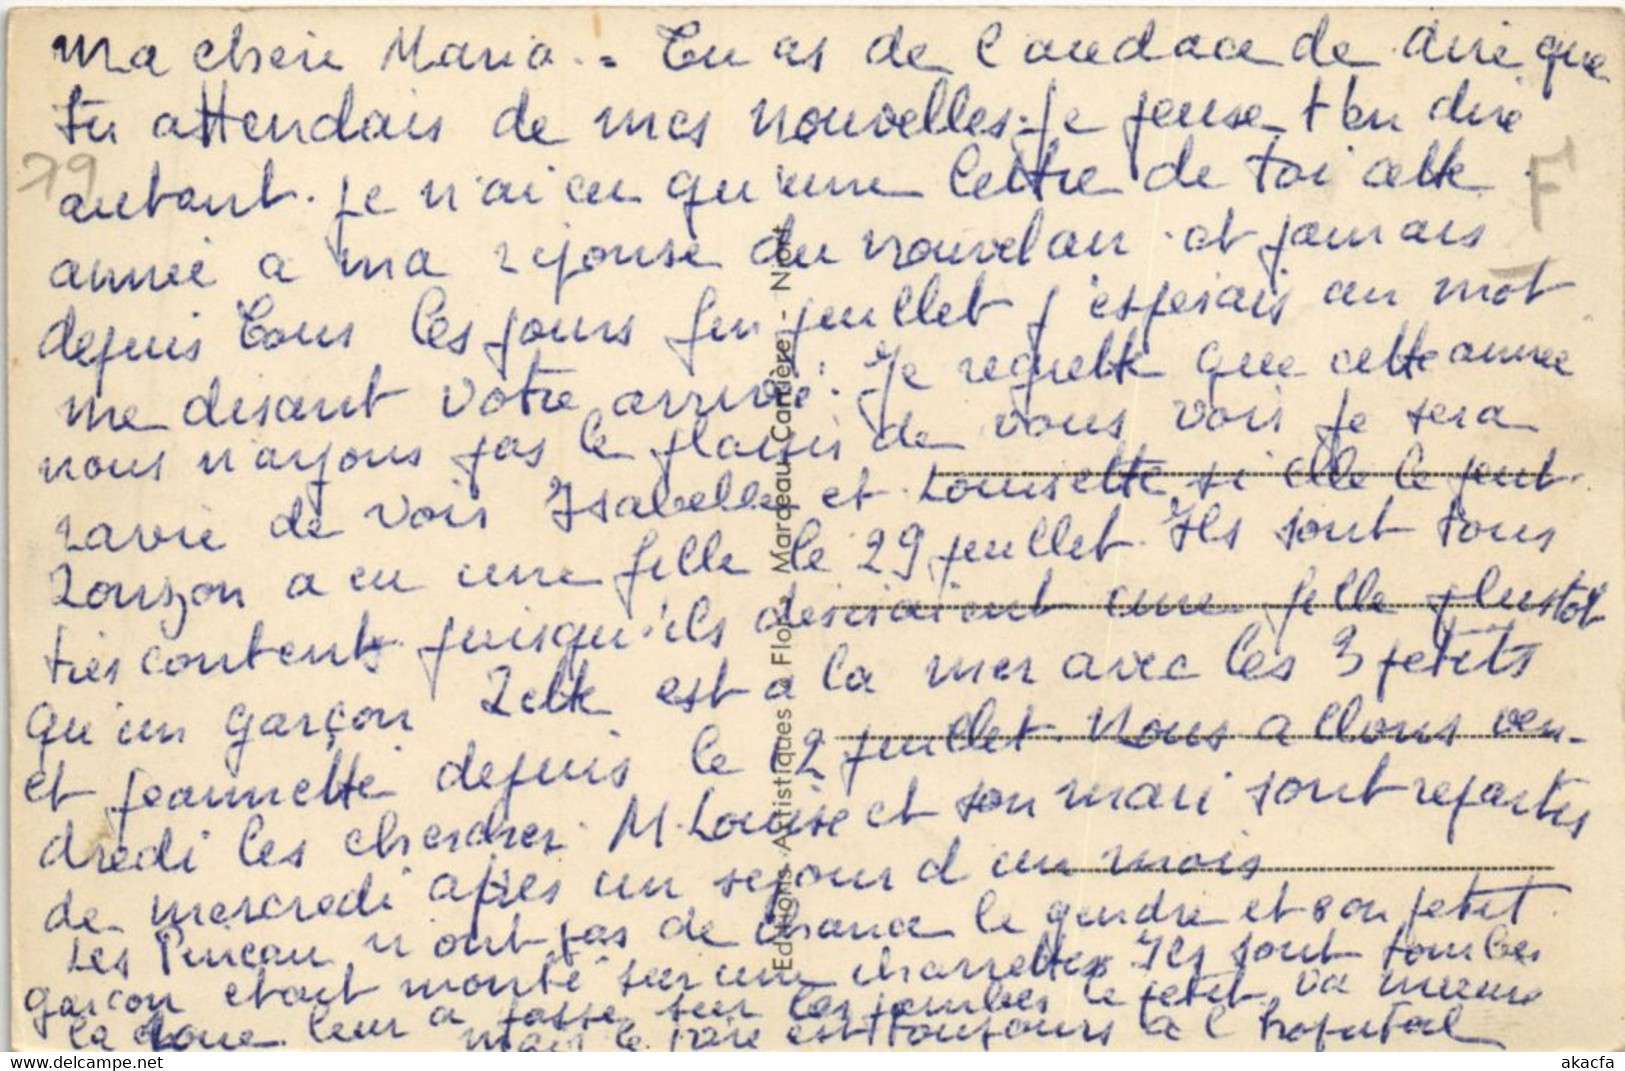 Ma cherie Maria. = Tu as de l audace de dire que
tu attendais de mes nouvelles. Je pense t en dire
autant. Je n ai eu qu'une lettre de toi cette
année a ma reponse du nouvel an. et jamais
depuis tous les jours fin juillet j'esperais un mot
me disant votre arrivé. Je regrette que cette annee
nous n'ayons pas le plaisir de vous voir je sera
ravie de voir Isabelle et Louisette si elle le peut.
Zouzon a eu une fille le 29 juillet. Ils sont tous
tres contents puisqu'ils desiraient une fille plustot
qu'un garçon Zette est a la mer avec les 3 petits
et Jeannette depuis le 12 juillet. Nous allons ven-
dredi les chercher. M. Louise et son mari sont repartis
de mercredi après un sejour d un mois
Les Pineau n'ont pas de chance le gendre et son petit
garcon etait monté sur une charrette. Ils sont tombes
la roue leur a passe sur les jambes le petit va mieux
mais le père est toujours a l hopital
79
F
Editions Artistiques a Flor - Marceau Carrière - Niort
akacfa